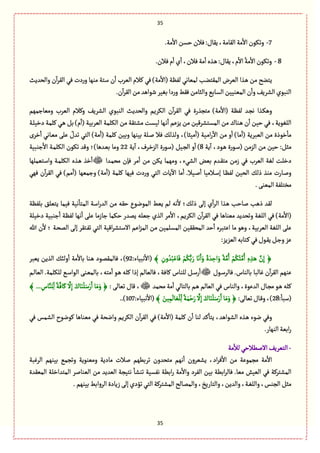 35
7- وتكون الأمة القامة ، يقال: فلان حسن الأمة.
8- وتكون الأمةُ الأم ، يقال: هذه أمة فلان ، أي أم فلان.
يتضح من هذا العرض المقتضب لمعاني لفظة (الأمة) في كلام العرب أن ستة منها وردت في القرآن والحديث
النبوي الشريف وأن المعنيين السابع والثامن فقط وردا بغير شواهد من القرآن.
وهكذا نجد لفظة (الأمة) متجذرة في القرآن الكريم والحديث النبوي الشريف وكلام العرب ومعاجمهم
اللغوية ، في حين أن هناك من المستشرقين من يزعم أنها ليست مشتقة من الكلمة العربية (أم) بل هي كلمة دخيلة
مأخوذة من العبرية (أما) أو من الآرامية (أميثا)، ولذلك فلا صلة بينها وبين كلمة (أمة) التي تدلّ على معاني أخرى
مثل: حين من الزمن (سورة هود ، آية 8) أو الجيل (سورة الزخرف، آية 22 وما بعدها)؛ وقد تكون الكلمة الأجنبية
دخلت لغة العرب في زمن متقدم بعض الشيء ، ومهما يكن من أمر فإن محمدا ﷺ أخذ هذه الكلمة واستعملها
وصارت منذ ذلك الحين لفظا إسلاميا أصيلا. أما الآيات التي وردت فيها كلمة (أمة) وجمعها (أمم) في القرآن فهي
مختلفة المعنى .
لقد ذهب صاحب هذا الرأي إلى ذلك ؛ لأنه لم يعط الموضوع حقه من الدراسة المتأنية فيما يتعلق بلفظة
(الأمة) في اللغة وتحديد معناها في القرآن الكريم ، الأمر الذي جعله يصدر حكما جازما على أنها لفظة أجنبية دخيلة
على اللغة العربية ، وهو ما اعتبره أحد المحققين المسلمين من المزاعم الاستشراقية التي تفتقر إلى الصحة ؛ لأن الله
عز وجل يقول في كتابه العزيز:
﴿ إِنَّ هَٰذِهِ أُمَّتُكُمْ أُمَّةً وَاحِدَةً وَأَنَا رَبُّكُمْ فَاعْبُدُونِ ﴾ (الأنبياء:92)، فالمقصود هنا بالأمة أولئك الذين يعبر
عنهم القرآن غالبا بالناس. فالرسول ﷺ أرسل للناس كافة ، فالعالم إذا كله هو أمته ، بالمعنى الواسع للكلمة. العالم
كله هو مجال الدعوة ، والناس في العالم هم بالتالي أمة محمد ﷺ ، قال تعالى : ﴿ وَمَا أَرْسَلْنَاكَ إِلَّا كَافَّةً لِّلنَّاسِ... ﴾
(سبأ:28)، وقال تعالى: ﴿ وَمَا أَرْسَلْنَاكَ إِلَّا رَحْمَةً لِّلْعَالَمِينَ ﴾ (الأنبياء:107)..
وفي ضوء هذه الشواهد ، يتأكد لنا أن كلمة (الأمة) في القرآن الكريم واضحة في معناها كوضوح الشمس في
رابعة النهار.
- التعريف الاصطلاحي للأمة
الأمة مجموعة من الأفراد ، يشعرون أنهم متحدون تربطهم صلات مادية ومعنوية وتجمع بينهم الرغبة
المشتركة في العيش معا. فالرابطة بين الفرد والأمة رابطة نفسية تنشأ نتيجة العديد من العناصر المتداخلة المعقدة
مثل الجنس ، واللغة ، والدين ، والتاريخ ، والمصالح المشتركة التي تؤدي إلى زيادة الروابط بينهم .
35